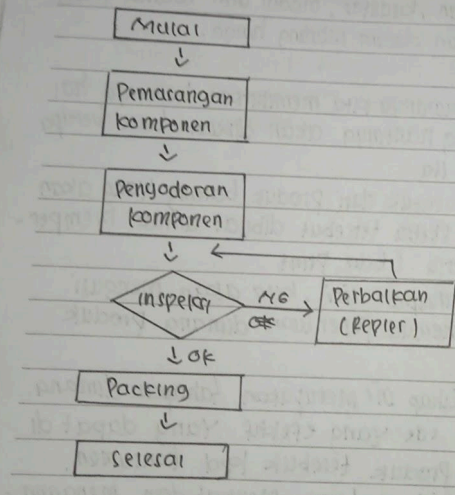 Mulai
Pemasangan
komponen
Penyodoran
komponen
inspeksi
NG
Perbaikan
(Repier)
OK
Packing
Selesai